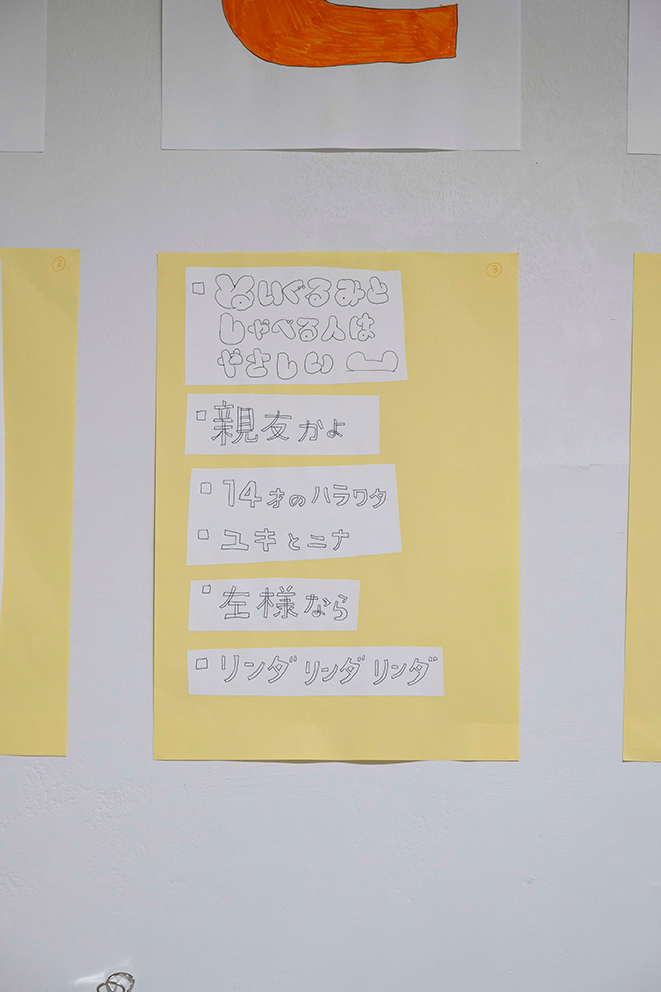 ②
③
□ ぬいぐるみと
しゃべる人は
やさしい
□ 親友かよ
□ 14才のハラワタ
□ ユキとニナ
□ 左様なら
□ リンダ リンダ リンダ